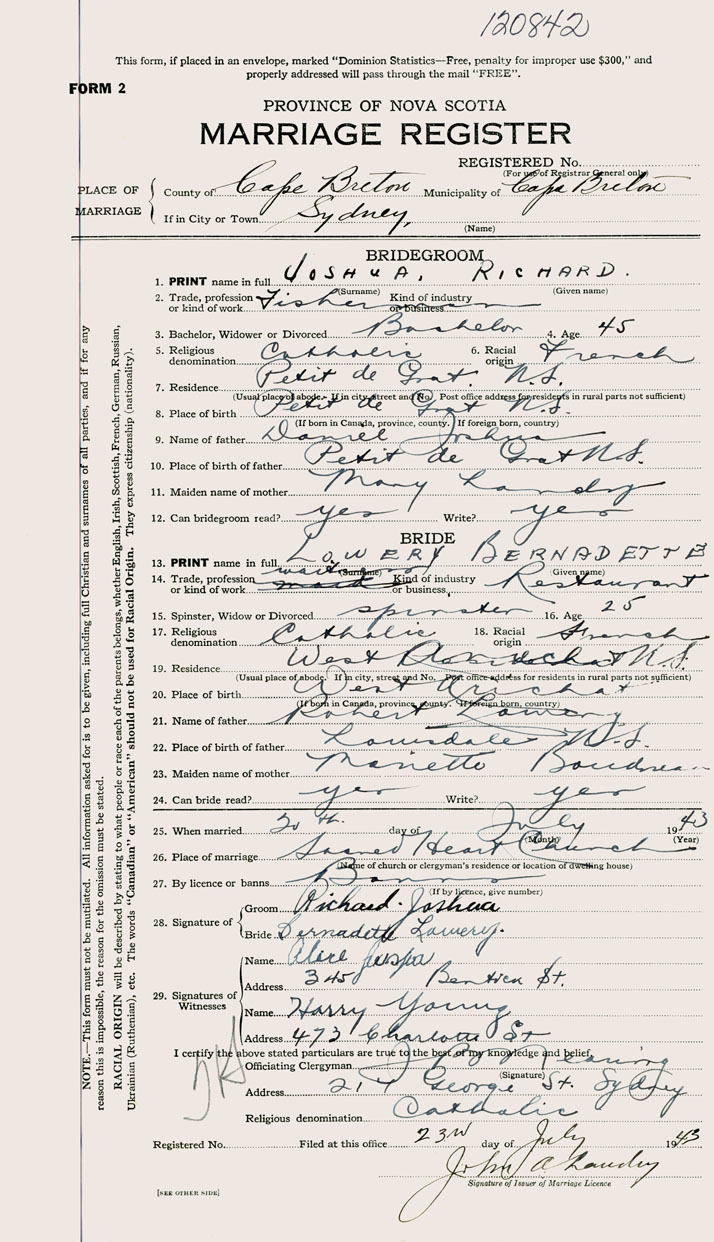 120842
This form, if placed in an envelope, marked "Dominion Statistics—Free, penalty for improper use $300," and
properly addressed will pass through the mail "FREE".
FORM 2
PROVINCE OF NOVA SCOTIA
MARRIAGE REGISTER
REGISTERED No.
(For use of Registrar General only)
PLACE OF MARRIAGE
County of Cape Breton Municipality of Cape Breton
If in City or Town Sydney,
(Name)
BRIDEGROOM
1. PRINT name in full JOSHUA, RICHARD.
(Surname) (Given name)
2. Trade, profession or kind of work Fisherman Kind of industry or business
3. Bachelor, Widower or Divorced Bachelor 4. Age 45
5. Religious denomination Catholic 6. Racial origin French
7. Residence Petit de Grat N.S.
(Usual place of abode. If in city, street and No. Post office address for residents in rural parts not sufficient)
8. Place of birth Petit de Grat N.S.
(If born in Canada, province, county. If foreign born, country)
9. Name of father Daniel Joshua
10. Place of birth of father Petit de Grat N.S.
11. Maiden name of mother Mary Landry
12. Can bridegroom read? yes Write? yes
BRIDE
13. PRINT name in full LOWERY BERNADETTE
(Surname) (Given name)
14. Trade, profession or kind of work waitress Kind of industry or business, Restaurant
15. Spinster, Widow or Divorced spinster 16. Age 25
17. Religious denomination Catholic 18. Racial origin French
19. Residence West Arichat N.S.
(Usual place of abode. If in city, street and No. Post office address for residents in rural parts not sufficient)
20. Place of birth West Arichat
(If born in Canada, province, county. If foreign born, country)
21. Name of father Robert Lowery
22. Place of birth of father Louisdale N.S.
23. Maiden name of mother Mariette Boudreau
24. Can bride read? yes Write? yes
25. When married 20th. day of July 1943
(Month) (Year)
26. Place of marriage Sacred Heart Church
(Name of church or clergyman's residence or location of dwelling house)
27. By licence or banns Banns
(If by licence, give number)
28. Signature of
Groom Richard Joshua
Bride Bernadette Lowery.
29. Signatures of Witnesses
Name Alice
Address 345 St.
Name Harry Young
Address 473 Charlotte St
I certify the above stated particulars are true to the best of my knowledge and belief,
Officiating Clergyman
(Signature)
Address 217 George St. Sydney
Religious denomination Catholic
Registered No. Filed at this office 23rd day of July 1943
John A Landry
Signature of Issuer of Marriage Licence
[SEE OTHER SIDE]
NOTE.—This form must not be mutilated. All information asked for is to be given, including full Christian and surnames of all parties, and if for any
reason this is impossible, the reason for the omission must be stated.
RACIAL ORIGIN will be described by stating to what people or race each of the parents belongs, whether English, Irish, Scottish, French, German, Russian,
Ukrainian (Ruthenian), etc. The words "Canadian" or "American" should not be used for Racial Origin. They express citizenship (nationality).